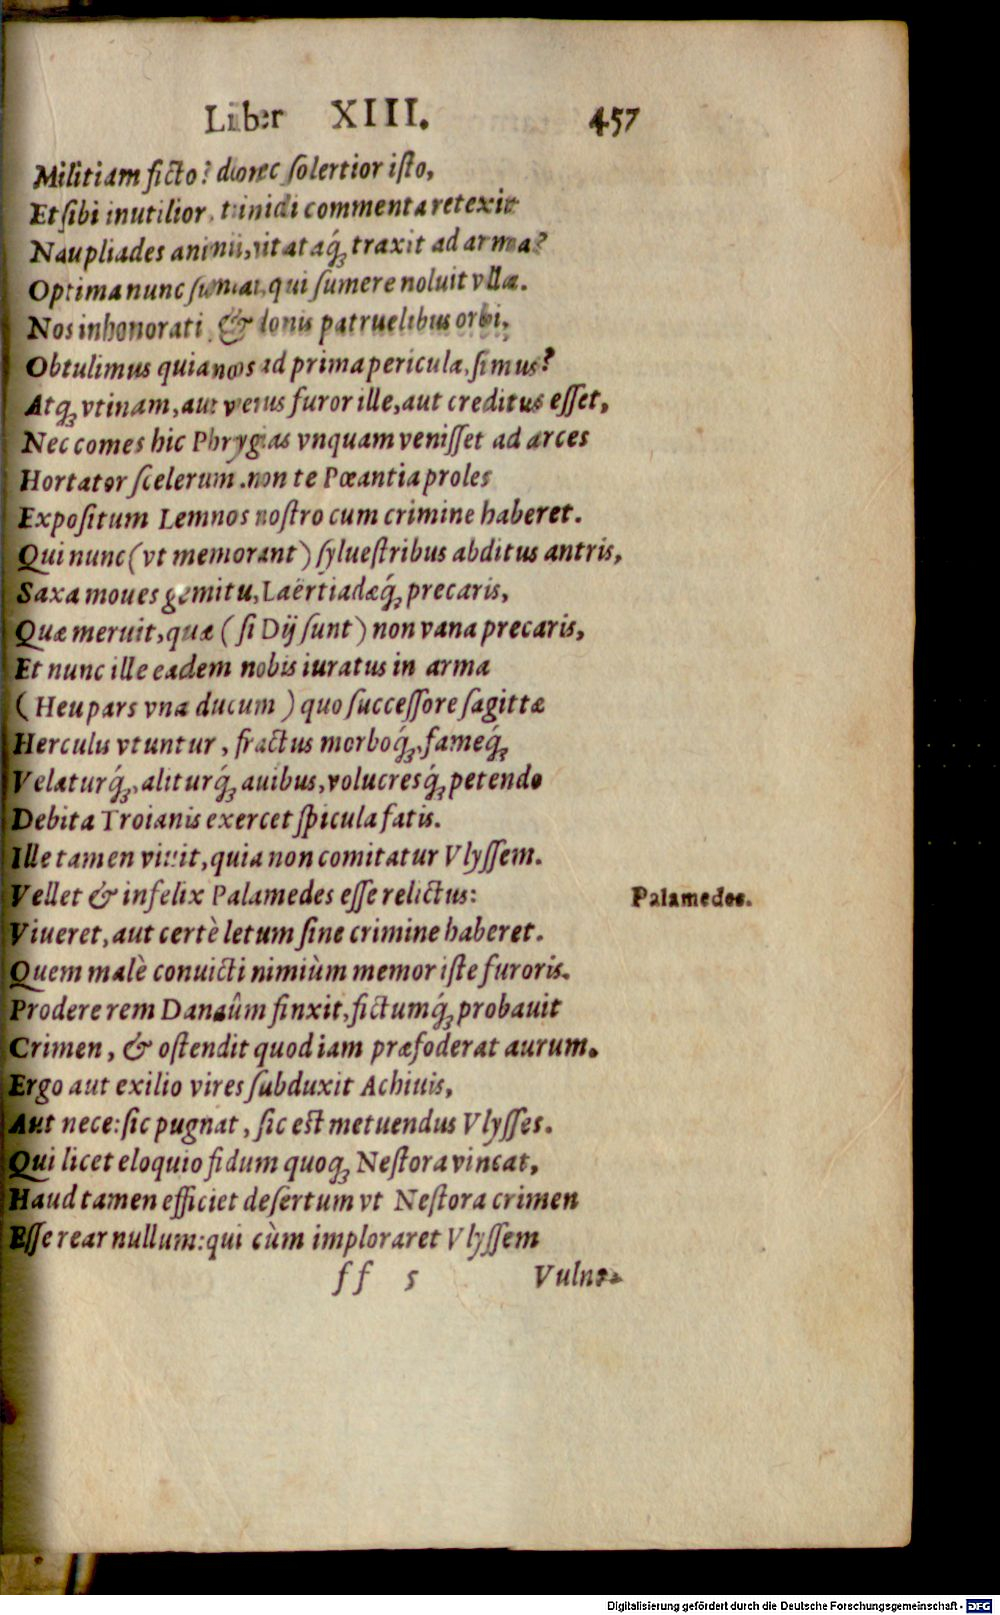 Liber XIII. 457
Militiam ficto? donec ſolertior iſto,
Et ſibi inutilior, timidi commenta retexit
Naupliades animi, vitataq́; traxit ad arma?
Optima nunc ſumat, qui ſumere noluit vlla.
Nos inhonorati, & donis patruelibus orbi,
Obtulimus quia nos ad prima pericula, ſimus?
Atq; vtinam, aut verus furor ille, aut creditus eſſet,
Nec comes hic Phrygias vnquam veniſſet ad arces
Hortator ſcelerum. non te Pœantia proles
Expoſitum Lemnos noſtro cum crimine haberet.
Qui nunc (vt memorant) ſylueſtribus abditus antris,
Saxa moues gemitu, Laërtiadæq́; precaris,
Quæ meruit, quæ (ſi Dij ſunt) non vana precaris,
Et nunc ille eadem nobis iuratus in arma
(Heu pars vna ducum) quo ſucceſſore ſagittæ
Herculis vtuntur, fractus morboq́;, fameq́;
Velaturq́;, aliturq́; auibus, volucresq́; petendo
Debita Troianis exercet ſpicula fatis.
Ille tamen viuit, quia non comitatur Vlyſſem.
Vellet & infelix Palamedes eſſe relictus:
Palamedes.
Viueret, aut certè letum ſine crimine haberet.
Quem malè conuicti nimiùm memor iſte furoris.
Prodere rem Danaûm finxit, fictumq́; probauit
Crimen, & oſtendit quod iam præfoderat aurum.
Ergo aut exilio vires ſubduxit Achiuis,
Aut nece: ſic pugnat, ſic eſt metuendus Vlyſſes.
Qui licet eloquio fidum quoq; Neſtora vincat,
Haud tamen efficiet deſertum vt Neſtora crimen
Eſſe rear nullum: qui cùm imploraret Vlyſſem
ff 5 Vulne-
Digitalisierung gefördert durch die Deutsche Forschungsgemeinschaft - DFG